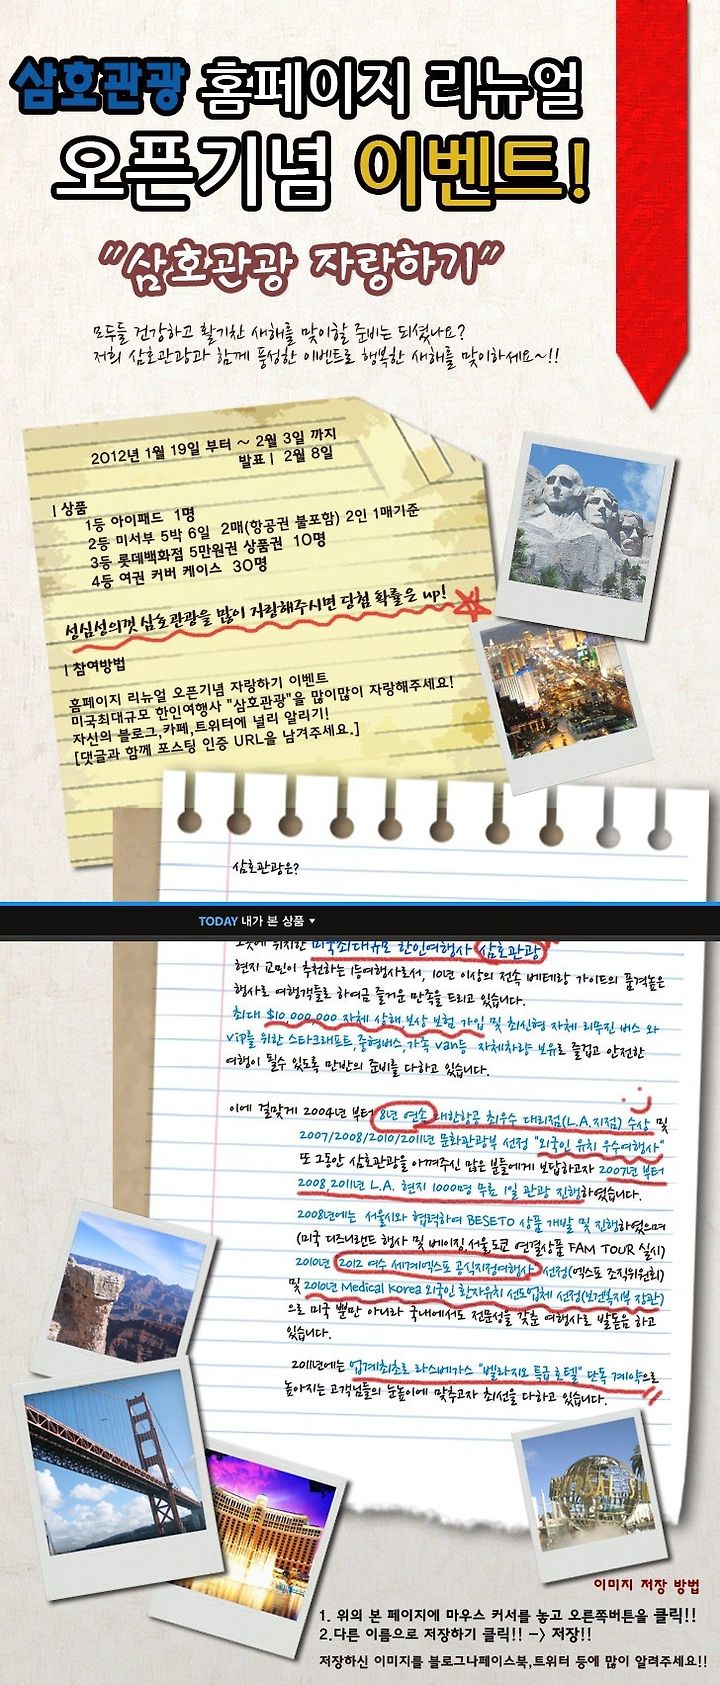 삼호관광 홈페이지 리뉴얼
오픈기념 이벤트!
"삼호관광 자랑하기"
모두들 건강하고 활기찬 새해를 맞이할 준비는 되셨나요?
저희 삼호관광과 함께 풍성한 이벤트로 행복한 새해를 맞이하세요~!!
2012년 1월 19일 부터 ~ 2월 3일 까지
발표 | 2월 8일
| 상품
1등 아이패드 1명
2등 미서부 5박 6일 2매(항공권 불포함) 2인 1매기준
3등 롯데백화점 5만원권 상품권 10명
4등 여권 커버 케이스 30명
성심성의껏 삼호관광을 많이 자랑해주시면 당첨 확률은 up!
| 참여방법
홈페이지 리뉴얼 오픈기념 자랑하기 이벤트
미국최대규모 한인여행사 "삼호관광"을 많이많이 자랑해주세요!
자신의 블로그,카페,트위터에 널리 알리기!
[댓글과 함께 포스팅 인증 URL을 남겨주세요.]
삼호관광은?
TODAY 내가 본 상품
위치한 미국최대규모 한인여행사 삼호관광
현지 교민이 추천하는 1등여행사로서, 10년 이상의 전속 베테랑 가이드의 품격높은
행사로 여행객들로 하여금 즐거운 만족을 드리고 있습니다.
최대 $10,000,000 자체 상해 보상 보험 가입 및 최신형 자체 리무진 버스 와
vip를 위한 스타크래프트,중형버스,가족 van등 자체차량 보유로 즐겁고 안전한
여행이 될수 있도록 만반의 준비를 다하고 있습니다.
이에 걸맞게 2004년 부터 8년 연속 대한항공 최우수 대리점(L.A.지점) 수상 및
2007/2008/2010/2011년 문화관광부 선정 "외국인 유치 우수여행사"
또 그동안 삼호관광을 아껴주신 많은 분들에게 보답하고자 2007년 부터
2008,2011년 L.A. 현지 1000명 무료 1일 관광 진행하였습니다.
2008년에는 서울시와 협력하여 BESETO 상품 개발 및 진행하였으며
(미국 디즈니랜드 행사 및 베이징,서울,도쿄 연결상품 FAM TOUR 실시)
2010년 2012 여수 세계엑스포 공식지정여행사 선정(엑스포 조직위원회)
및 2010년 Medical Korea 외국인 환자유치 선도업체 선정(보건복지부 장관)
으로 미국 뿐만 아니라 국내에서도 전문성을 갖춘 여행사로 발돋음 하고
있습니다.
2011년에는 업계최초로 라스베가스 "벨라지오 특급 호텔" 단독 계약으로
높아지는 고객님들의 눈높이에 맞추고자 최선을 다하고 있습니다.
이미지 저장 방법
1. 위의 본 페이지에 마우스 커서를 놓고 오른쪽버튼을 클릭!!
2.다른 이름으로 저장하기 클릭!! -> 저장!!
저장하신 이미지를 블로그나페이스북,트위터 등에 많이 알려주세요!!